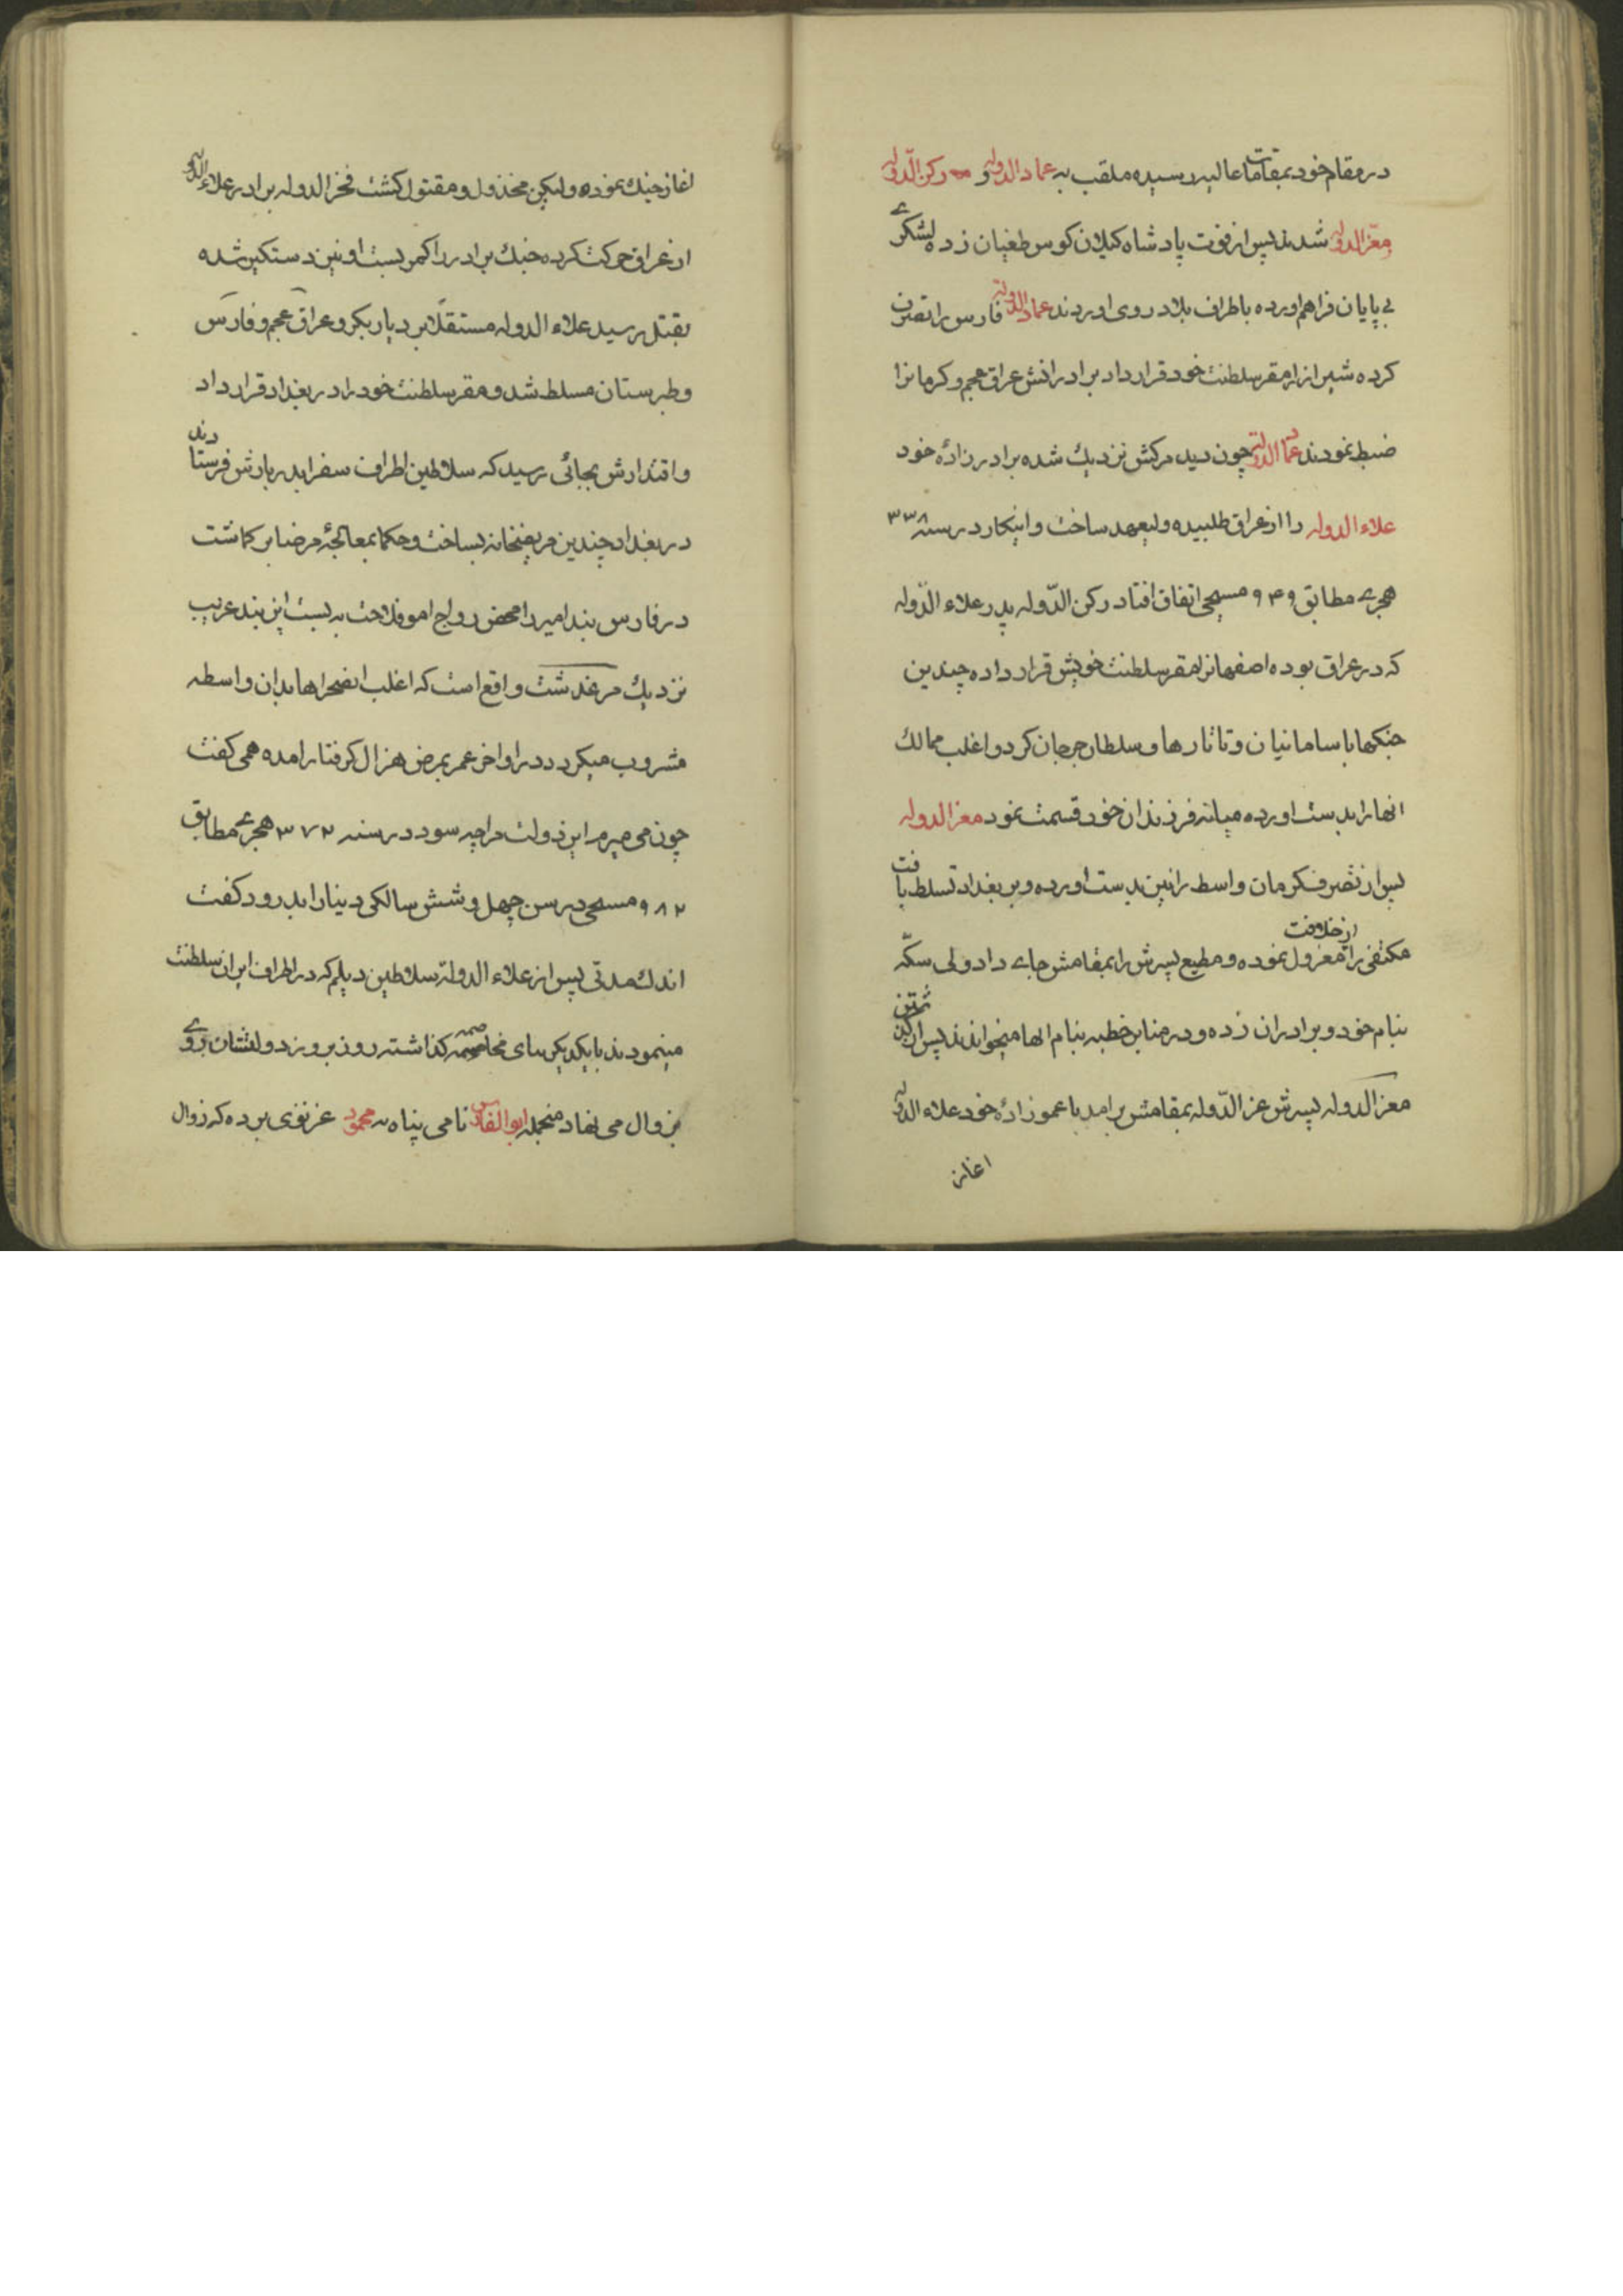 در مقام خود بمقامات عالیه رسیده ملقب به عماد الدوله و رکن الدّوله
معزّ الدوله شدند پس از فوت پادشاه کیلان کوس طغیان زده لشکرے
بے پایان فراهم اورده باطراف بلاد روی اوردند عماد الدوله فارس را تصرف
کرده شیراز را مقر سلطنت خود قرار داد برادرانش عراق عجم و کرمانرا
ضبط نمودند عماد الدوله چون دید مرکش نزدیك شده برادرزادهٔ خود
علاء الدوله را از عراق طلبیده ولیعهد ساخت و اینکار در سنه ۳۳۸
هجرے مطابق ۹۴۹ مسیحی اتفاق افتاد رکن الدّوله پدر علاء الدّوله
که در عراق بوده اصفهانرا مقر سلطنت خویش قرار داده چندین
جنکها با سامانیان و تاتارها و سلطان جرجان کرد و اغلب ممالك
انها را بدست اورده میانه فرزندان خود قسمت نمود معز الدوله
پس از تصرف کرمان واسط را نیز بدست اورده و بر بغداد تسلط یافت
مکتفی را از خلافت معزول نموده و مطیع پسرش را بمقامش جاے داد ولی سکّه
بنام خود و برادران زده و در منابر خطبه بنام انها میخواندند پس از
معز الدوله پسرش عز الدّوله بمقامش برامد با عموزادهٔ خود علاء الدوله
اغاز
اغاز جنك نموده ولیکن مخذول و مقتول کشت فخر الدوله برادر علاء الدوله
از عراق حرکت کرده جنك برادر را کمر بست او نیز دستکیر شده
بقتل رسید علاء الدوله مستقلّا بر دیار بکر و عراق عجم و فارس
و طبرستان مسلط شد و مقر سلطنت خود را در بغداد قرار داد
و اقتدارش بجائی رسید که سلاطین اطراف سفرا بدربارش فرستادند
در بغداد چندین مریضخانه بساخت و حکما بمعالجهٔ مرضا بر کماشت
در فارس بند امیر را محض رواج امو فلاحت به بست این بند غریب
نزدیك مرغدشت واقع است که اغلب انصحراها بدان واسطه
مشروب میکردد در اواخر عمر بمرض هزال کرفتار امده همی کفت
چون می میرم این دولت مرا چه سود در سنه ۳۷۲ هجرے مطابق
۹۸۲ مسیحی در سن چهل و شش سالکی دنیا را بدرود کفت
اندك مدتی پس از علاء الدوله سلاطین دیلم که در اطراف ایران سلطنت
مینمودند با یکدیکر بنای مخاصمه کذاشته روز بروز دولتشان روے
بزوال می نهاد منجمله ابو الفارس نامی پناه به محمود غزنوی برده که زوال